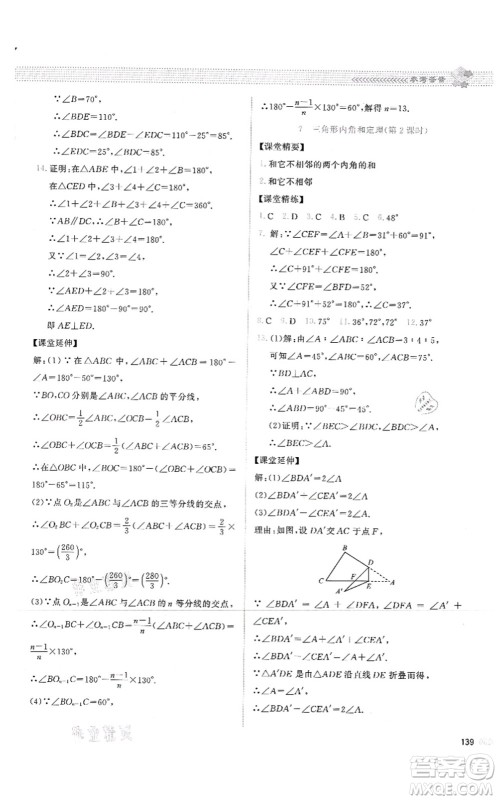 参考答案
∵∠B=70°,
∴∠BDE=110°,
∴∠EDC=70°.
14. 证明:在△ABE 中,
∠1+∠4+∠B=180°,
∵∠B=∠4,
∴∠1+2∠4=180°.
∴2∠4=180°-∠1.
∵AB∥DC,
∴∠1+∠2+∠3=180°.
又∵∠2=∠3,
∴∠1+2∠3=180°,
∴2∠3=180°-∠1.
∴∠4+∠3=90°.
∴∠AED=180°-90°=90°.
即AE⊥ED.
【课堂延伸】
解:(1)∵在△ABC中,∠ABC+∠ACB=
180°-∠A=130°,
∵BO,CO分别是∠ABC与∠ACB的平分线,
∴∠OBC=1/2∠ABC,∠OCB=1/2∠ACB,
∴∠OBC+∠OCB=1/2(∠ABC+∠ACB)=65°,
∴∠BOC=180°-65°=115°.
(2)∵点O₂是∠ABC与∠ACB的三等分线的交点,
∴∠O₂BC+∠O₂CB=2/3(∠ABC+∠ACB)=2/3×
130°=(260/3)°,
∴∠BO₂C=180°-(260/3)°=(280/3)°.
(3)∵点Oₙ₋₁是∠ABC与∠ACB的n等分线的交点,
∴∠Oₙ₋₁BC+∠Oₙ₋₁CB=n-1/n(∠ABC+∠ACB)=
n-1/n×130°,
∴∠BOₙ₋₁C=180°-n-1/n×130°.
(4)∵∠BOₙ₋₁C=60°,
∴180°-n-1/n×130°=60°,解得n=13.
7 三角形内角和定理(第2课时)
【课堂精要】
1. 和它不相邻的两个内角的和
2. 和它不相邻
【课堂精练】
1. C 2. D 3. C 4. D 5. C 6. 48°
7. 解:∵∠CEF=∠A+∠B,∠A=31°,∠B=60°,
∴∠CEF=31°+60°=91°.
∵∠C+∠CEF=∠BFD=128°,
∴∠C=∠BFD-∠CEF=128°-91°=37°.
8. C 9. D 10. 75° 11. 36°,72°,72° 12. 46°
13. 解:(1)由∠A:∠ABC:∠ACB=3:4:5,
可知∠A=45°,∠ABC=60°,∠ACB=75°.
∵BD⊥AC,
∴∠A+∠1=90°.
∴∠1=90°-45°=45°.
(2)证明:∵∠BEC>∠BDC,∠BDC>∠A,
∴∠BEC>∠A.
【课堂延伸】
解:∠BDA′+∠CEA′=2∠A
理由:如图,设DA′交AC于点F,
B
D
C
F
E
A
A′
∵∠BDA′=∠A+∠DFA,∠DFA=∠A′+
∠CEA′,
∴∠BDA′=∠A+∠A′+∠CEA′,
∴∠BDA′-∠CEA′=∠A+∠A′.
∵△A′DE是由△ADE沿直线DE折叠而得,
∴∠A=∠A′,
∴∠BDA′-∠CEA′=2∠A.
139
答案圈
MXQE.COM